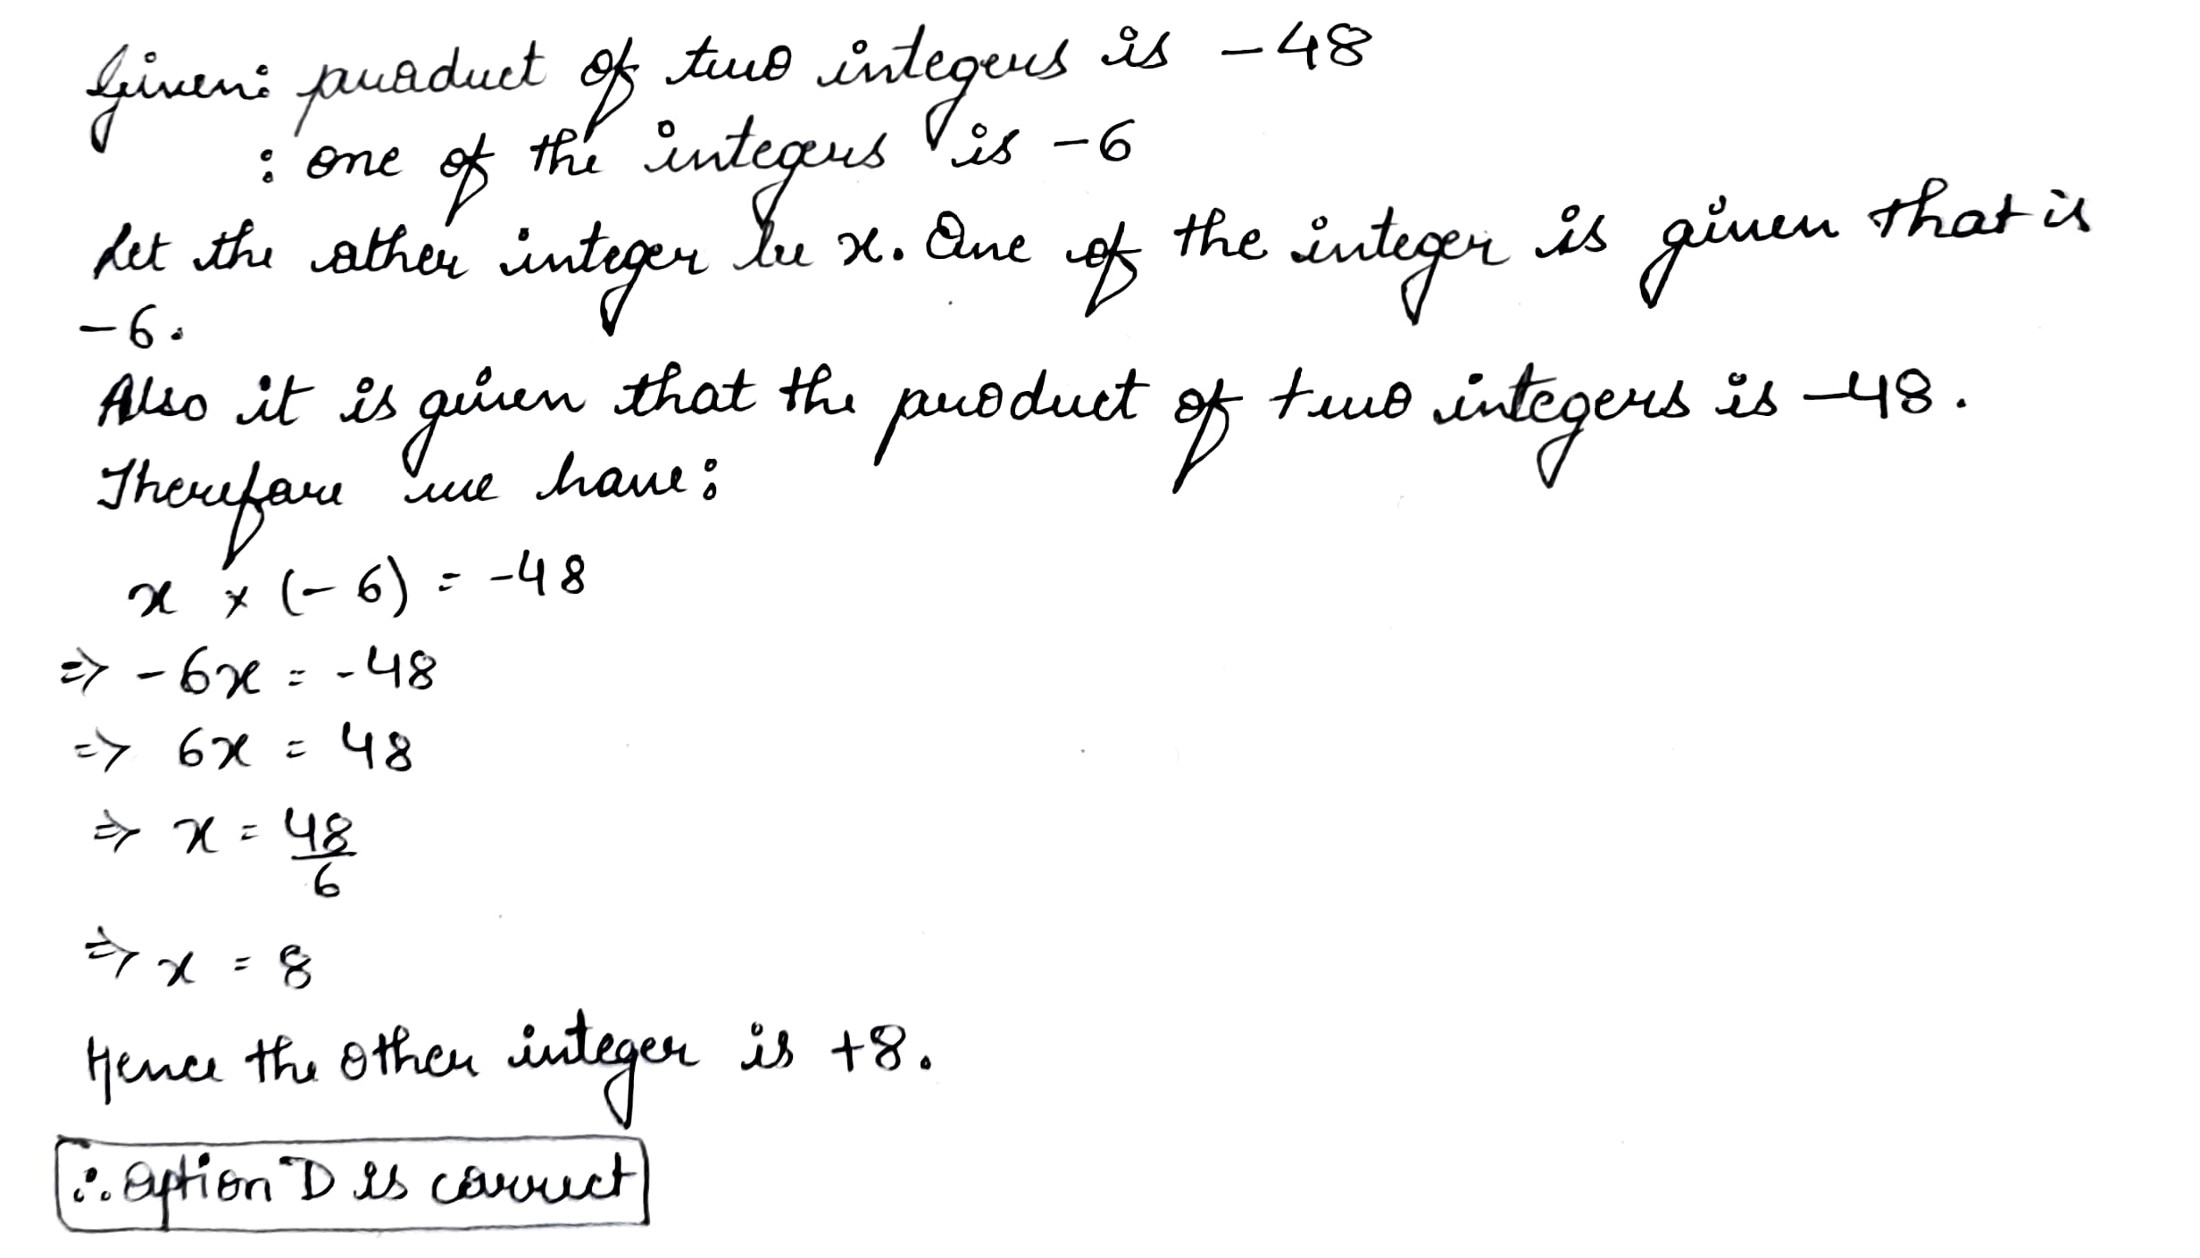 Given: product of two integers is -48
: one of the integers is -6
Let the other integer be x. One of the integer is given that is
-6.
Also it is given that the product of two integers is -48.
Therefore we have:
x × (-6) = -48
⇒ -6x = -48
⇒ 6x = 48
⇒ x = 48/6
⇒ x = 8
Hence the other integer is +8.
∴ option D is correct